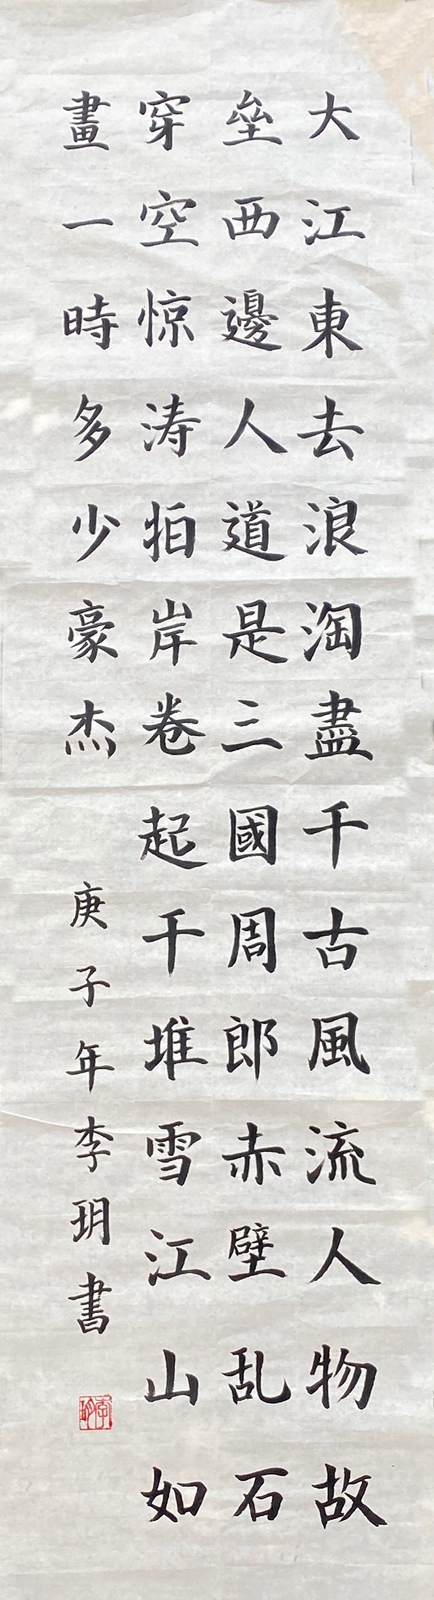 大江東去浪淘盡千古風流人物故
壘西邊人道是三國周郎赤壁乱石
穿空惊涛拍岸卷起千堆雪江山如
畫一時多少豪杰
庚子年李玥書